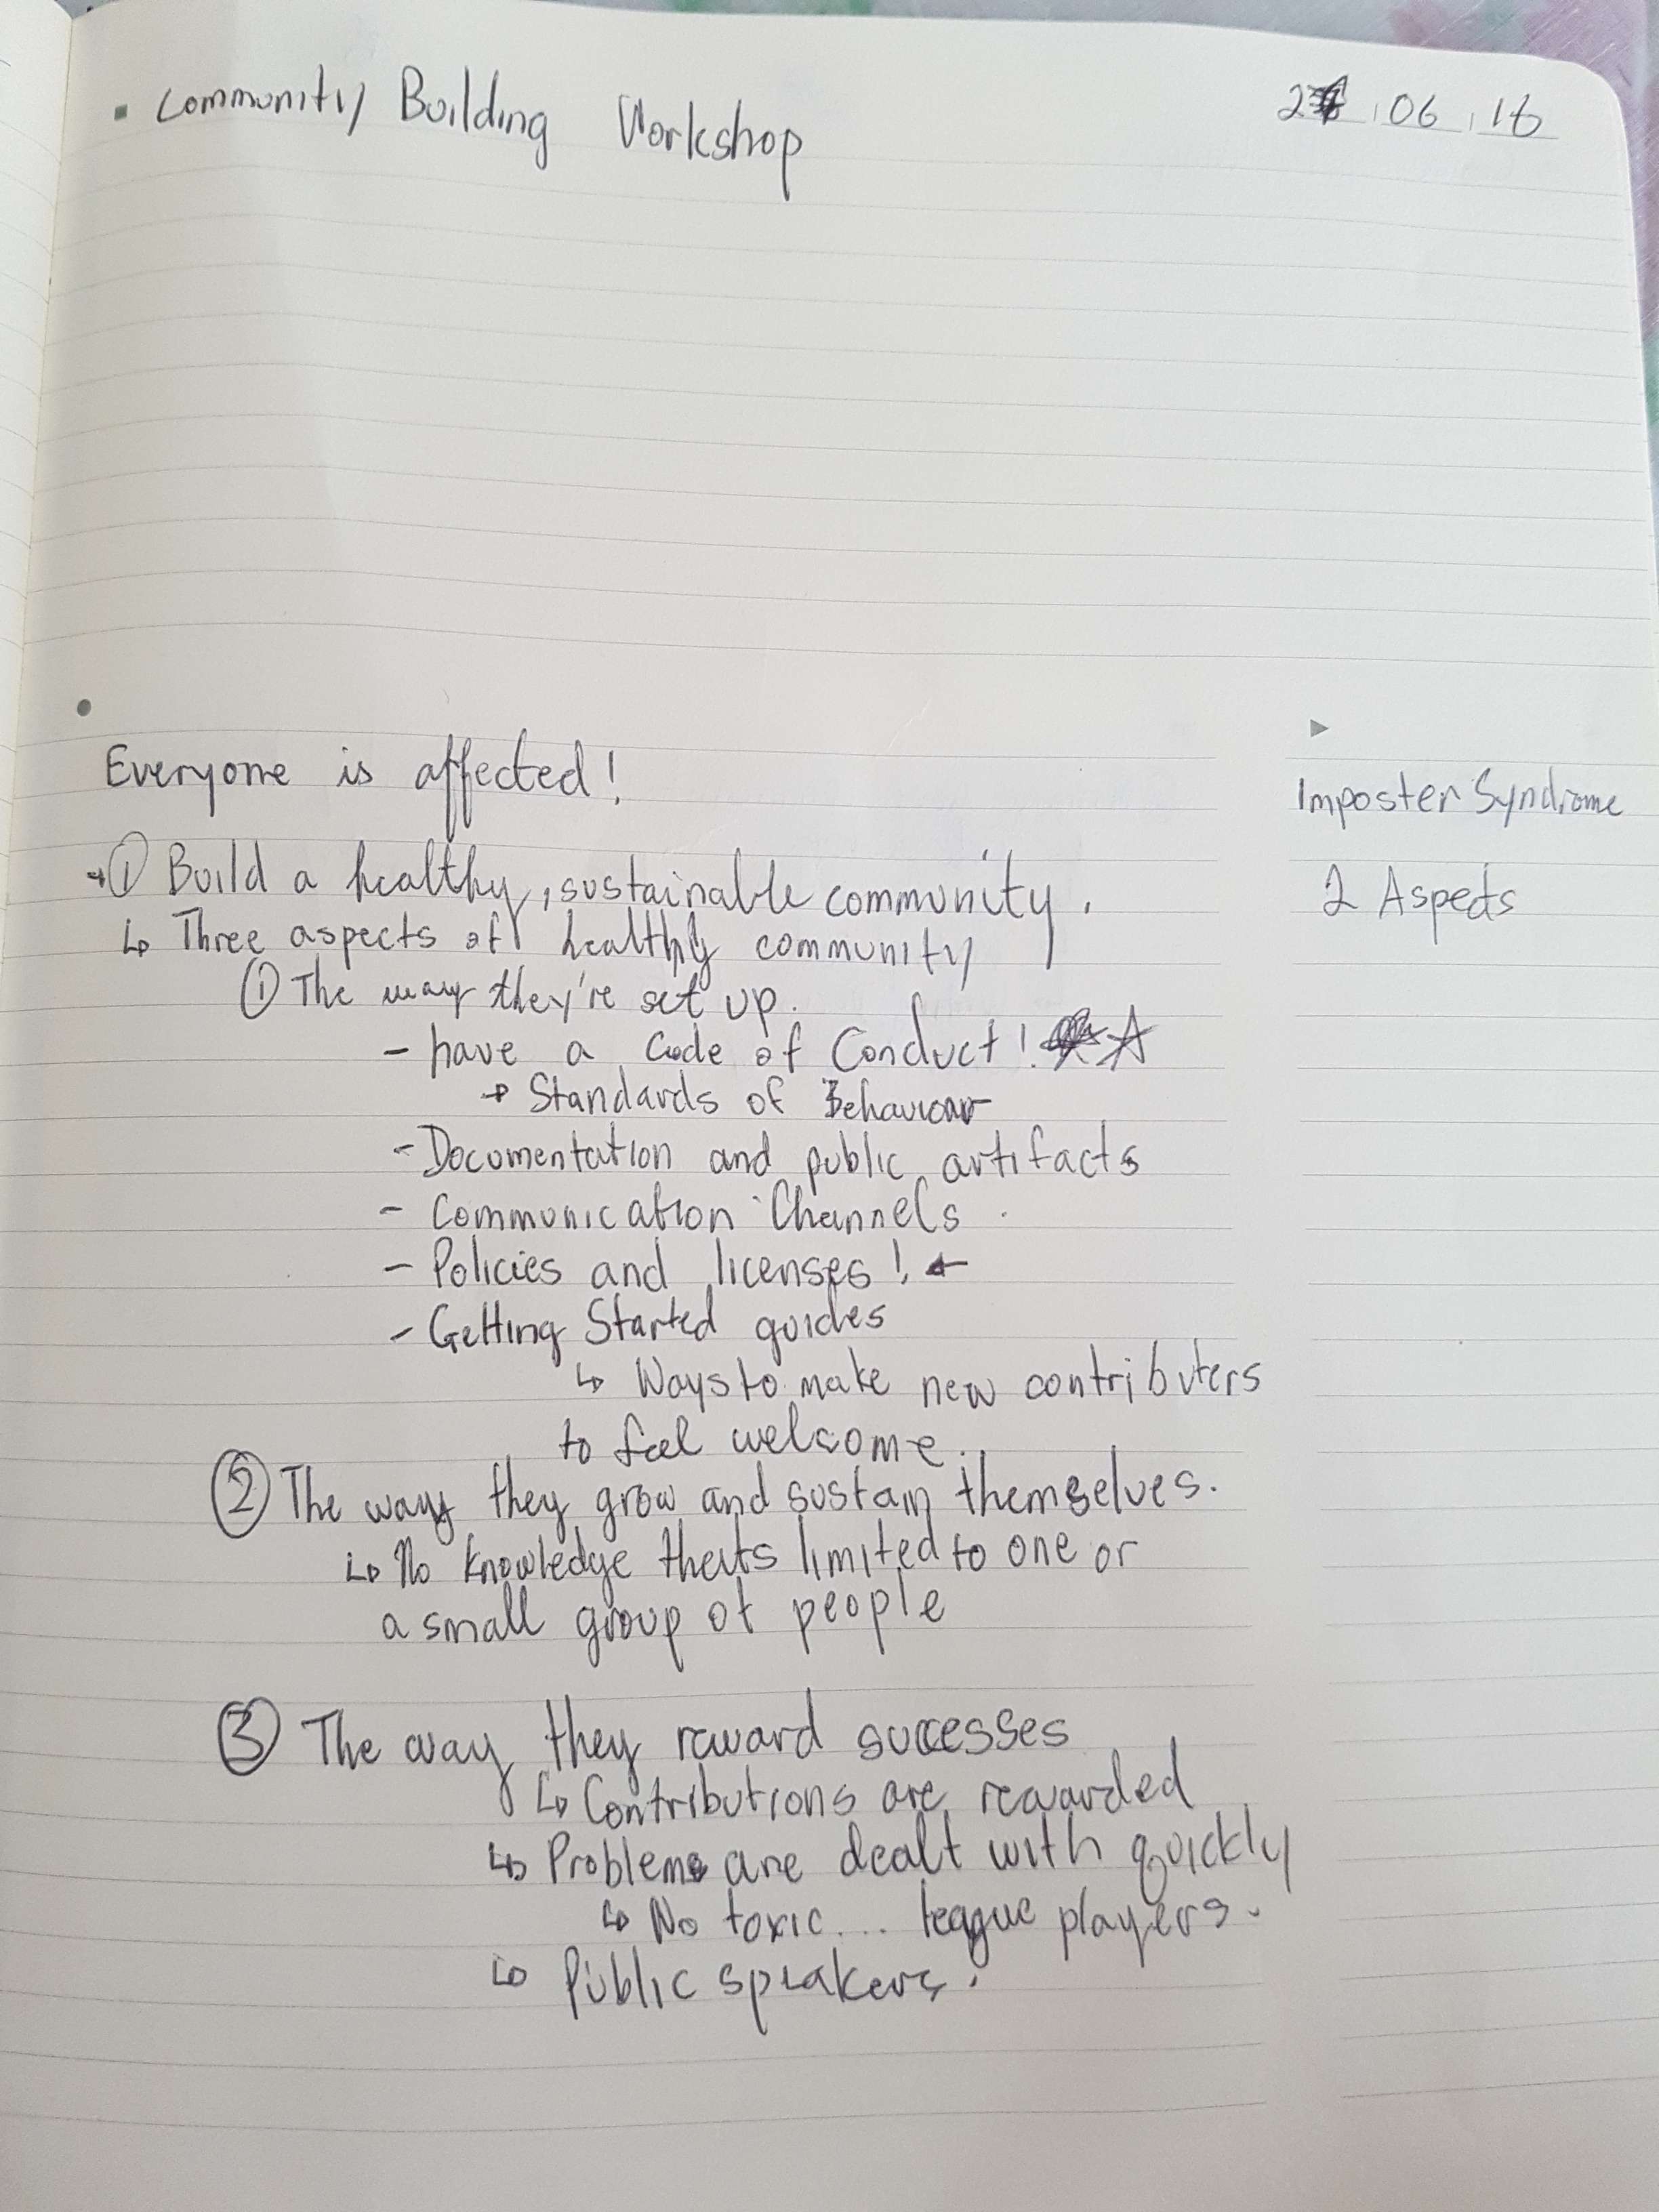 Community Building Workshop
06 16
Everyone is affected!
Imposter Syndrome
① Build a healthy, sustainable community.
2 Aspects
↳ Three aspects of healthy community
① The way they're set up.
- have a Code of Conduct! ☆
→ Standards of Behaviour
- Documentation and public artifacts
- Communication Channels.
- Policies and licenses! ←
- Getting Started guides
↳ Ways to make new contributers
to feel welcome.
② The way they grow and sustain themselves.
↳ No knowledge thats limited to one or
a small group of people
③ The way they reward successes
↳ Contributions are rewarded
↳ Problems are dealt with quickly
↳ No toxic... league players.
↳ Public speakers.